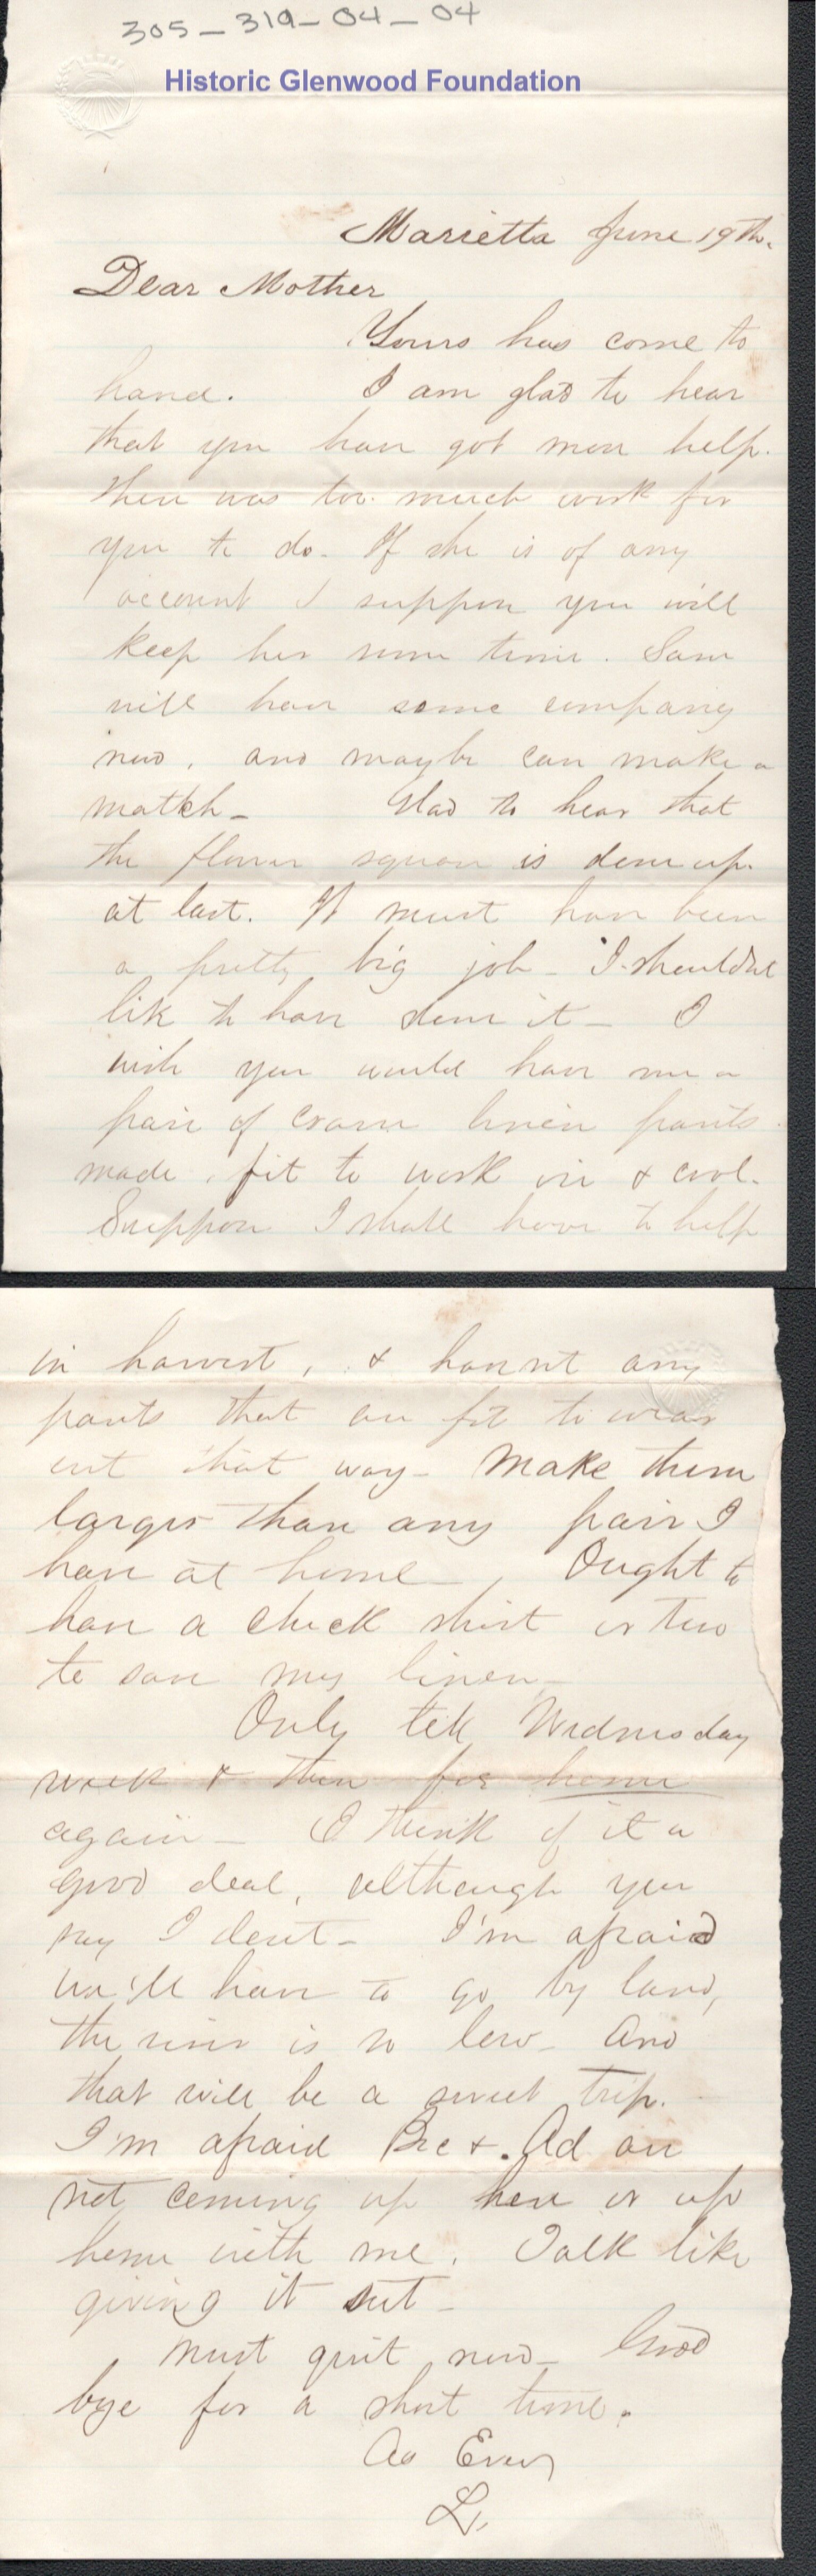 305-319-04-04
Historic Glenwood Foundation
Marietta June 19th.
Dear Mother
Yours has come to
hand. I am glad to hear
that you have got more help.
there was too much work for
you to do. If she is of any
account I suppose you will
keep her some time. Sam
will have some company
now, and maybe can make a
match - Glad to hear that
the flower square is done up
at last. It must have been
a pretty big job - I shouldnt
like to have done it - I
wish you would have me a
pair of linen pants
made, fit to work in & cool.
Suppose I shall have to help
in harvest, & havnt any
pants that are fit to wear
out that way - Make them
larger than any pair I
have at home, Ought to
have a check shirt or two
to save my linen -
Only till Wednesday
week & then for home
again - I think of it a
good deal, although you
say I dont - I'm afraid
we'll have to go by land,
the river is so low - And
that will be a sweet trip.
I'm afraid & Ad are
not coming up here or up
home with me. Talk like
giving it out -
Must quit now - Good
bye for a short time.
As Ever
L.